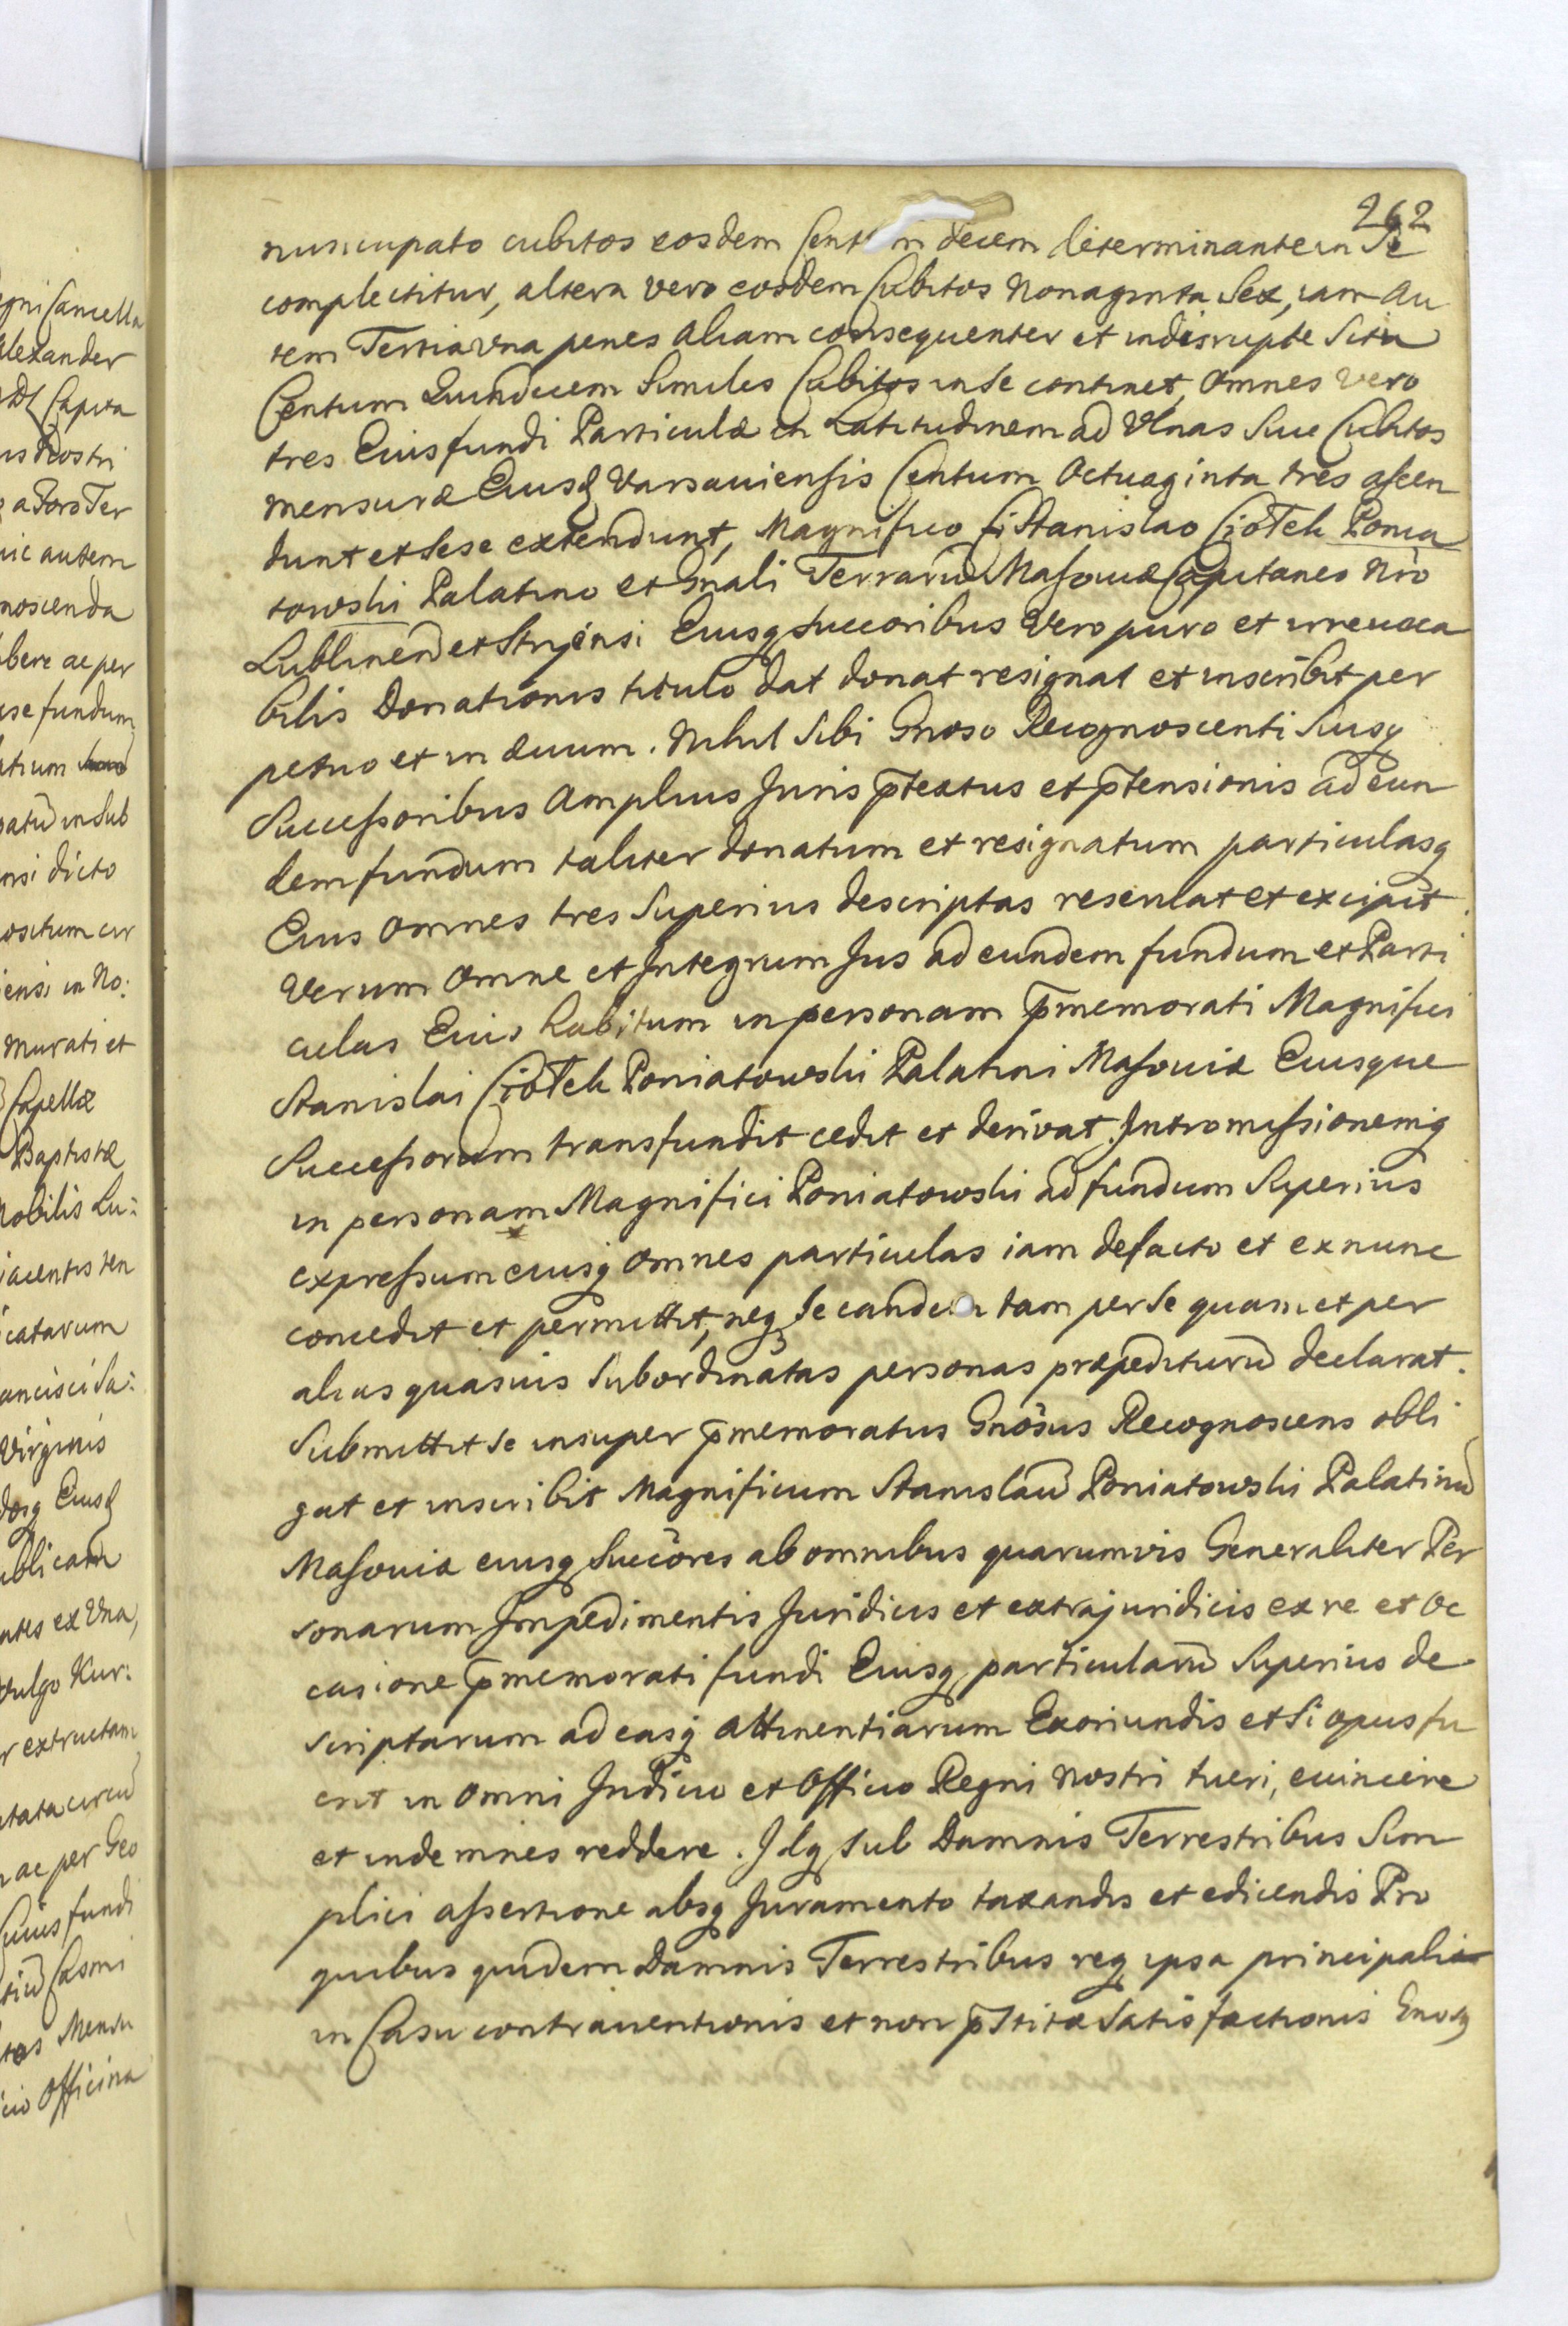 262
nuncupato cubitos eosdem Cent m decem determinantem Se
complectitur, altera vero eosdem Cubitos Nonaginta Sex, iam au
tem Tertia vna penes aliam consequenter et indisrupte Sita
Centum Quindecem Similes Cubitos in se continet, omnes vero
tres Eius fundi Particulæ in Latitudinem ad Vlnas Siue Cubitos
mensuræ Eiusd Varsauiensis Centum Octuaginta tres ascen
dunt et sese extendunt, Magnifico Stanislao Ciołek Ponia
towski Palatino et Gnali Terrarū Masouiæ Capitaneo Nro
Lublinen et Stryensi Eiusq succoribus Vero puro et irreuoca
bilis Donationis titulo dat donat resignat et inscribit per
petuo et in æuum. Nihil Sibi Gnoso Recognoscenti Suisq
Successoribus Amplius Juris p̄textus et p̄tensionis ad eun
dem fundum taliter donatum et resignatum particulasq
Eius omnes tres Superius descriptas reseruat et excipit
Verum omne et Integrum Jus ad eundem fundum et Parti
culas Eius habitum in personam p̄memorati Magnifici
Stanislai Ciołek Poniatowski Palatini Masouiæ Eiusque
Successorum transfundit cedit et derivat. Intromissionemq
in personam Magnifici Poniatowski ad fundum Superius
expressum eiusq omnes particulas iam defacto et exnunc
concedit et permittit, neq Se eandem tam per se quam et per
alias quasuis Subordinatas personas præpediturū declarat.
Submittit se insuper p̄memoratus Gnosus Recognoscens obli
gat et inscribit Magnificum Stanislaū Poniatowski Palatinū
Masouiæ eiusq Succores ab omnibus quarumvis Generaliter Per
sonarum Impedimentis Juridicis et extrajuridicis ex re et oc
casione p̄memorati fundi Eiusq particularū Superius de
scriptarum ad easq attinentiarum Exoriundis et Si opus fu
erit in omni Judicio et Officio Regni Nostri tueri, euincere
et indemnes reddere. Idq sub Damnis Terrestribus Sim
plici assertione absq Juramento taxandis et edicendis Pro
quibus quidem Damnis Terrestribus req ipsa principali
in Casu contrauentionis et non p̄stitæ Satisfactionis